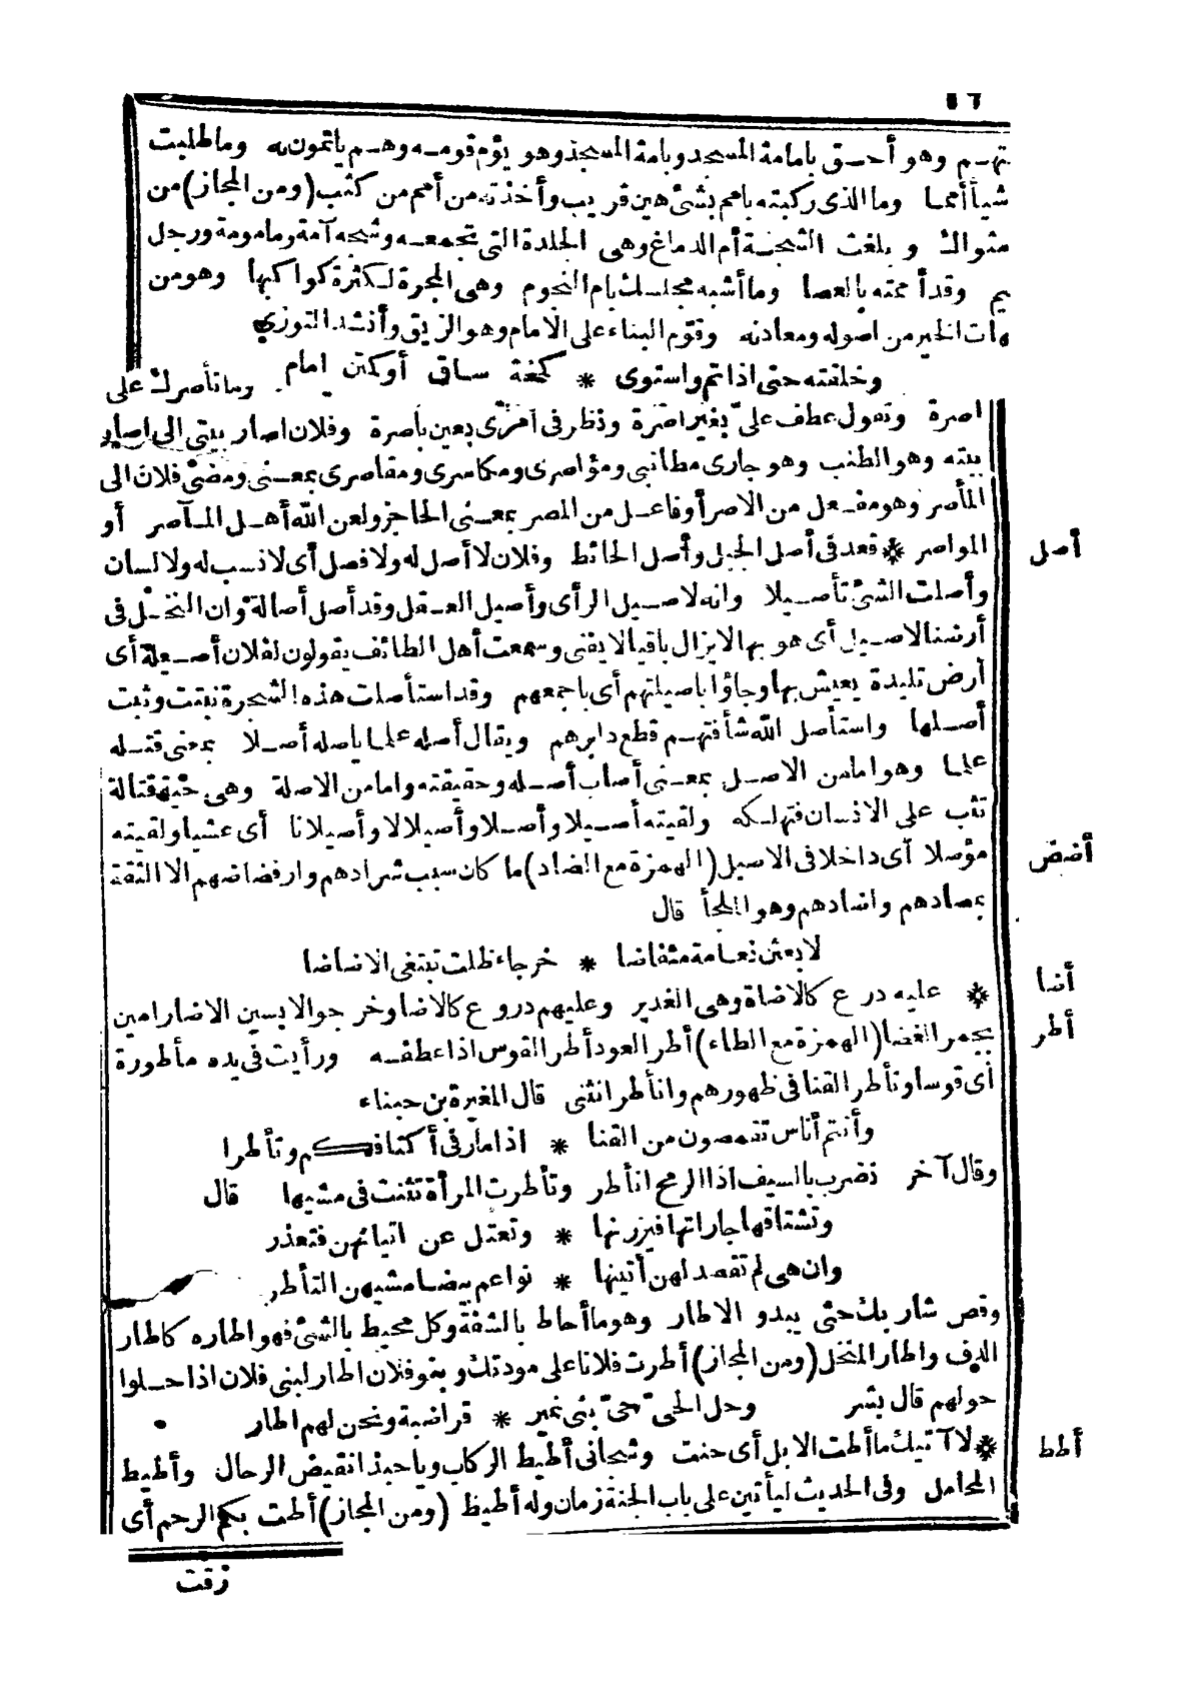 ١٦
تهم وهو أحق بامامة المسجد وبامة المسجد وهو يؤم قومه وهم يأتمون به وما طلبت
شيأ أمما وما الذى ركبته بامم بشئ هين قريب وأخذته من أمم من كثب (ومن المجاز) من
مثواك وبلغت الشجة أم الدماغ وهى الجلدة التى تجمعه وشجه آمة ومامومة ورجل
يم وقد أممته بالعصا وما أشبه مجلسك بام النجوم وهى المجرة لكثرة كواكبها وهو من
هات الخير من اصوله ومعادنه وقوّم البناء على الامام وهو الزيق وأنشد التوزي
وخلقته حتى اذا تم واستوى * كمخة ساق أو كمتن امام وما تأصرك على
اصرة وتقول عطف علىّ بغير اصرة ونظر فى أمرى بعين باصرة وفلان اصار بيتى الى اصار
بيته وهو الطنب وهو جارى مطانبى ومؤاصرى ومكاسرى ومقاصرى بمعنى ومضى فلان الى
المأصر وهو مفعل من الاصر أو فاعل من المصر بمعنى الحاجز ولعن الله أهل المآصر أو
المواصر * قعد فى أصل الجبل وأصل الحائط وفلان لا أصل له ولا فصل أى لا نسب له ولا لسان
أصل
وأصلت الشئ تأصيلا وانه لاصيل الرأى وأصيل العقل وقد أصل أصالة وان النخل فى
أرضنا لاصيل أى هو بها لا يزال باقيا لا يفنى وسمعت أهل الطائف يقولون لفلان أصيلة أى
أرض تليدة يعيش بها وجاؤا باصيلتهم أى باجمعهم وقد استأصلت هذه الشجرة نبتت وثبت
أصلها واستأصل الله شأفتهم قطع دابرهم ويقال أصله علما يأصله أصلا بمعنى قتله
علما وهو اما من الاصل بمعنى أصاب أصله وحقيقته واما من الاصلة وهى حية قتالة
تثب على الانسان فتهلكه ولقيته أصيلا وأصلا وأصيلالا وأصيلانا أى عشيا ولقيته
مؤصلا أى داخلا فى الاصيل (الهمزة مع الضاد) ما كان سبب شرادهم وارفضاضهم الا الثقة
أضض
بمصادهم واضادهم وهو الملجأ قال
لابعثن نعامة مثفاضا * خرجاء ظلت تبتغى الاضاضا
* عليه درع كالاضاة وهى الغدير وعليهم دروع كالاضا وخرجوا لابسين الاضا رامين
أضا
بجمر الغضا (الهمزة مع الطاء) أطر العود أطر القوس اذا عطفه ورأيت فى يده مأطورة
أطر
أى قوسا وتأطر القنا فى ظهورهم وانأطر انثنى قال المغيرة بن حبناء
وأنتم أناس تقمصون من القنا * اذا مار فى أكتافكم وتأطرا
وقال آخر نضرب بالسيف اذا الرمح انأطر وتأطرت المرأة تثنت فى مشيها قال
وتشتاقها جاراتها فيزرنها * وتعتل عن اتيانهن فتعذر
وان هى لم تقصد لهن أتينها * نواعم بيضا مشيهن التأطر
وقص شاربك حتى يبدو الاطار وهو ما أحاط بالشفة وكل محيط بالشئ فهو اطاره كاطار
الدف واطار المنخل (ومن المجاز) أطرت فلانا على مودتك وبنو فلان اطار لبنى فلان اذا حلوا
حولهم قال بشر وحل الحى حىّ بنى نمير * قراضبة ونحن لهم اطار
* لا آتيك ما أطت الابل أى حنت وشجانى أطيط الركاب ويا حبذا نقيض الرحال وأطيط
أطط
المحامل وفى الحديث ليأتين على باب الجنة زمان وله أطيط (ومن المجاز) أطت بكم الرحم أى
رقت